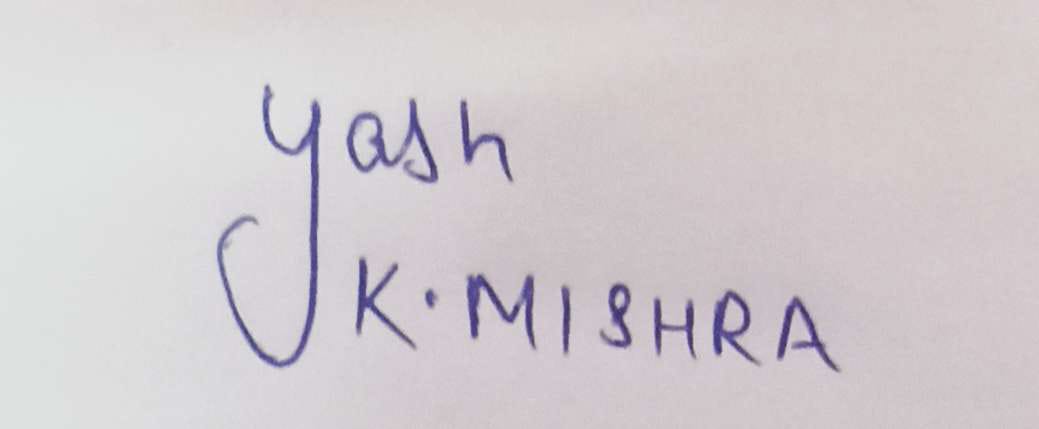 Yash
K. MISHRA